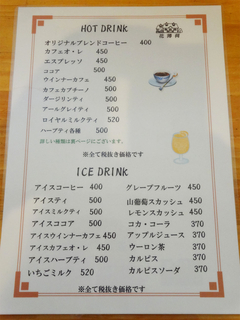 HOT DRINK
オリジナルブレンドコーヒー 400
カフェオ・レ 450
エスプレッソ 450
ココア 500
ウインナーカフェ 450
カフェカプチーノ 500
ダージリンティ 500
アールグレイティ 500
ロイヤルミルクティ 520
ハーブティ各種 500
詳しい種類は裏ページにございます。
※全て税抜き価格です
ICE DRINK
アイスコーヒー 400
アイスティ 500
アイスミルクティ 500
アイスココア 500
アイスウインナーカフェ 450
アイスカフェオ・レ 450
アイスハーブティ 500
いちごミルク 520
グレープフルーツ 450
山葡萄スカッシュ 450
レモンスカッシュ 450
コカ・コーラ 370
アップルジュース 370
ウーロン茶 370
カルピス 370
カルピスソーダ 370
※全て税抜き価格です